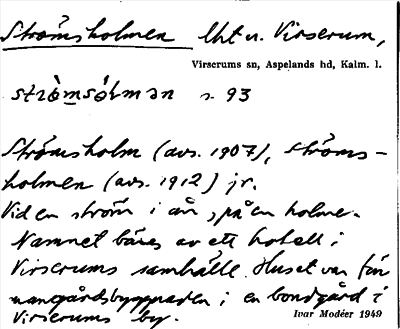 Strömsholmen lht u. Virserum,
Virserums sn, Aspelands hd, Kalm. l.
s. 93
Strömsholm (avs. 1907), Ströms-
holmen (avs. 1912) jr.
Vid en ström i ån, på en holme.
Namnet bäres av ett hotell i
Virserums samhälle. Huset var för
mangårdsbyggnaden i en bondgård i
Virserums by.
Ivar Modéer 1949